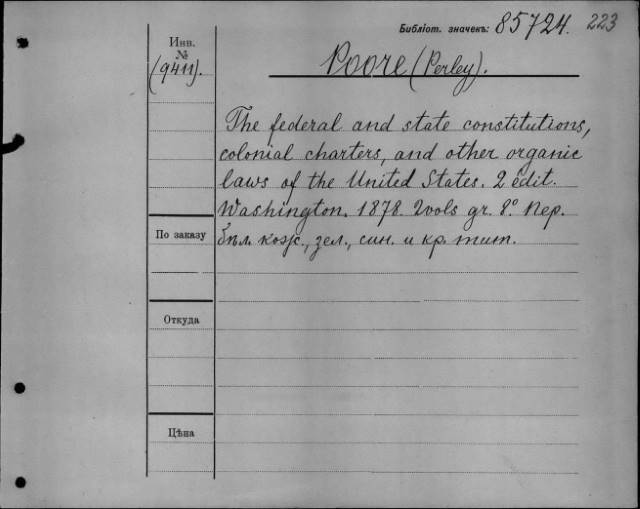 Библіот. значекъ: 85724. 223
Инв.
№
(9411).
Poore (Perley).
The federal and state constitutions,
colonial charters, and other organic
laws of the United States. 2 edit.
Washington. 1878. 2vols gr. 8.° Пер.
бѣл. кожс., зел., син. и кр. тит.
По заказу
Откуда
Цѣна